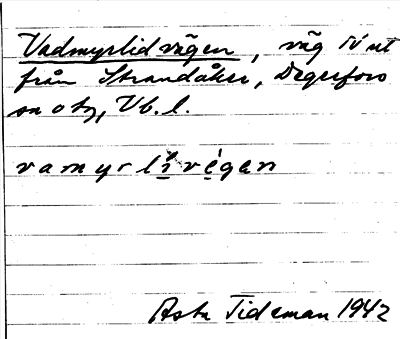 Vadmyrlidvägen, väg i V ut
från Strandåker, Degerfors
sn o tg, Vb. l.
vamyrlivegen
Asta Tideman 1942